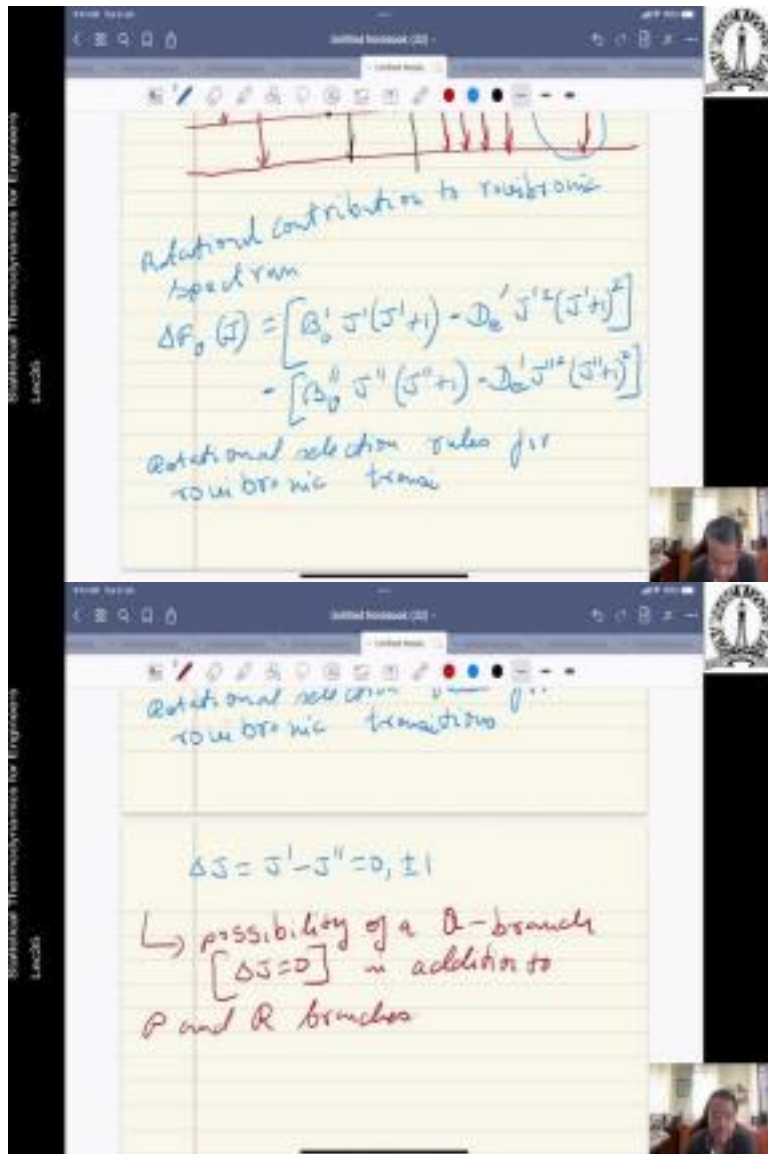 Statistical Thermodynamics for Engineers
Lec36
Untitled Notebook (22)
Rotational contribution to rovibronic
spectrum
ΔF₀ (J) = [B₀' J'(J'+1) - Dₑ' J'² (J'+1)²]
- [B₀'' J'' (J''+1) - Dₑ' J''² (J''+1)²]
Rotational selection rules for
rovibronic transi
Statistical Thermodynamics for Engineers
Lec36
Untitled Notebook (22)
Rotational selection rules for
rovibronic transitions
ΔJ = J' - J'' = 0, ±1
↳ possibility of a Q-branch
[ΔJ=0] in addition to
P and R branches